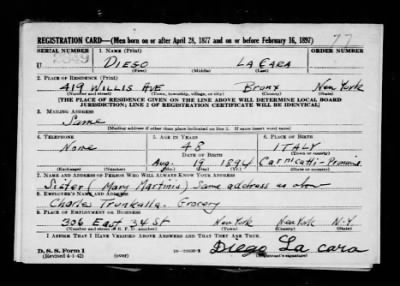 REGISTRATION CARD—(Men born on or after April 28, 1877 and on or before February 16, 1897)
SERIAL NUMBER 1. NAME (Print) ORDER NUMBER
DIEGO LA CARA
(First) (Middle) (Last)
2. PLACE OF RESIDENCE (Print)
419 WILLIS AVE BRONX NEW YORK
(Number and street) (Town, township, village, or city) (County) (State)
[THE PLACE OF RESIDENCE GIVEN ON THE LINE ABOVE WILL DETERMINE LOCAL BOARD
JURISDICTION; LINE 2 OF REGISTRATION CERTIFICATE WILL BE IDENTICAL]
3. MAILING ADDRESS
Same
(Mailing address if other than place indicated on line 2. If same insert word same)
4. TELEPHONE 5. AGE IN YEARS 6. PLACE OF BIRTH
None 48 ITALY
DATE OF BIRTH (Town or county)
Aug. 19 1894
(Exchange) (Number) (Mo.) (Day) (Yr.) (State or country)
7. NAME AND ADDRESS OF PERSON WHO WILL ALWAYS KNOW YOUR ADDRESS
Sister (Mary Martinis) Same address as above
8. EMPLOYER'S NAME AND ADDRESS
Charles Trunkalla. Grocery
9. PLACE OF EMPLOYMENT OR BUSINESS
336 East 34 St New York New York N-Y
(Number and street or R. F. D. number) (Town) (County) (State)
I AFFIRM THAT I HAVE VERIFIED ABOVE ANSWERS AND THAT THEY ARE TRUE.
D. S. S. Form 1 Diego La cara
(Revised 4-1-42) (over) (Registrant's signature)